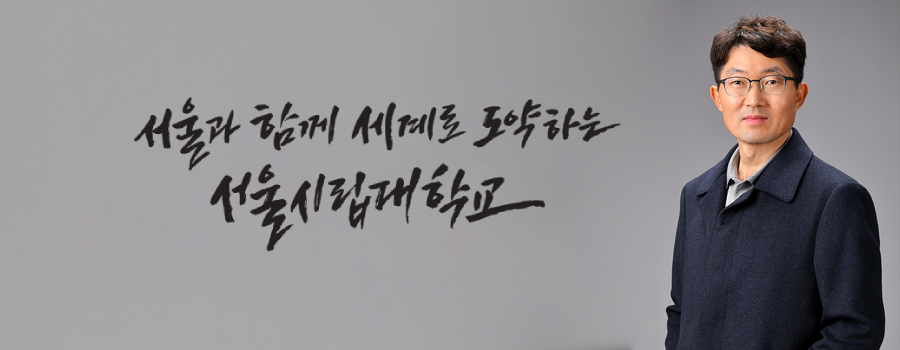 서울과 함께 세계로 도약하는
서울시립대학교